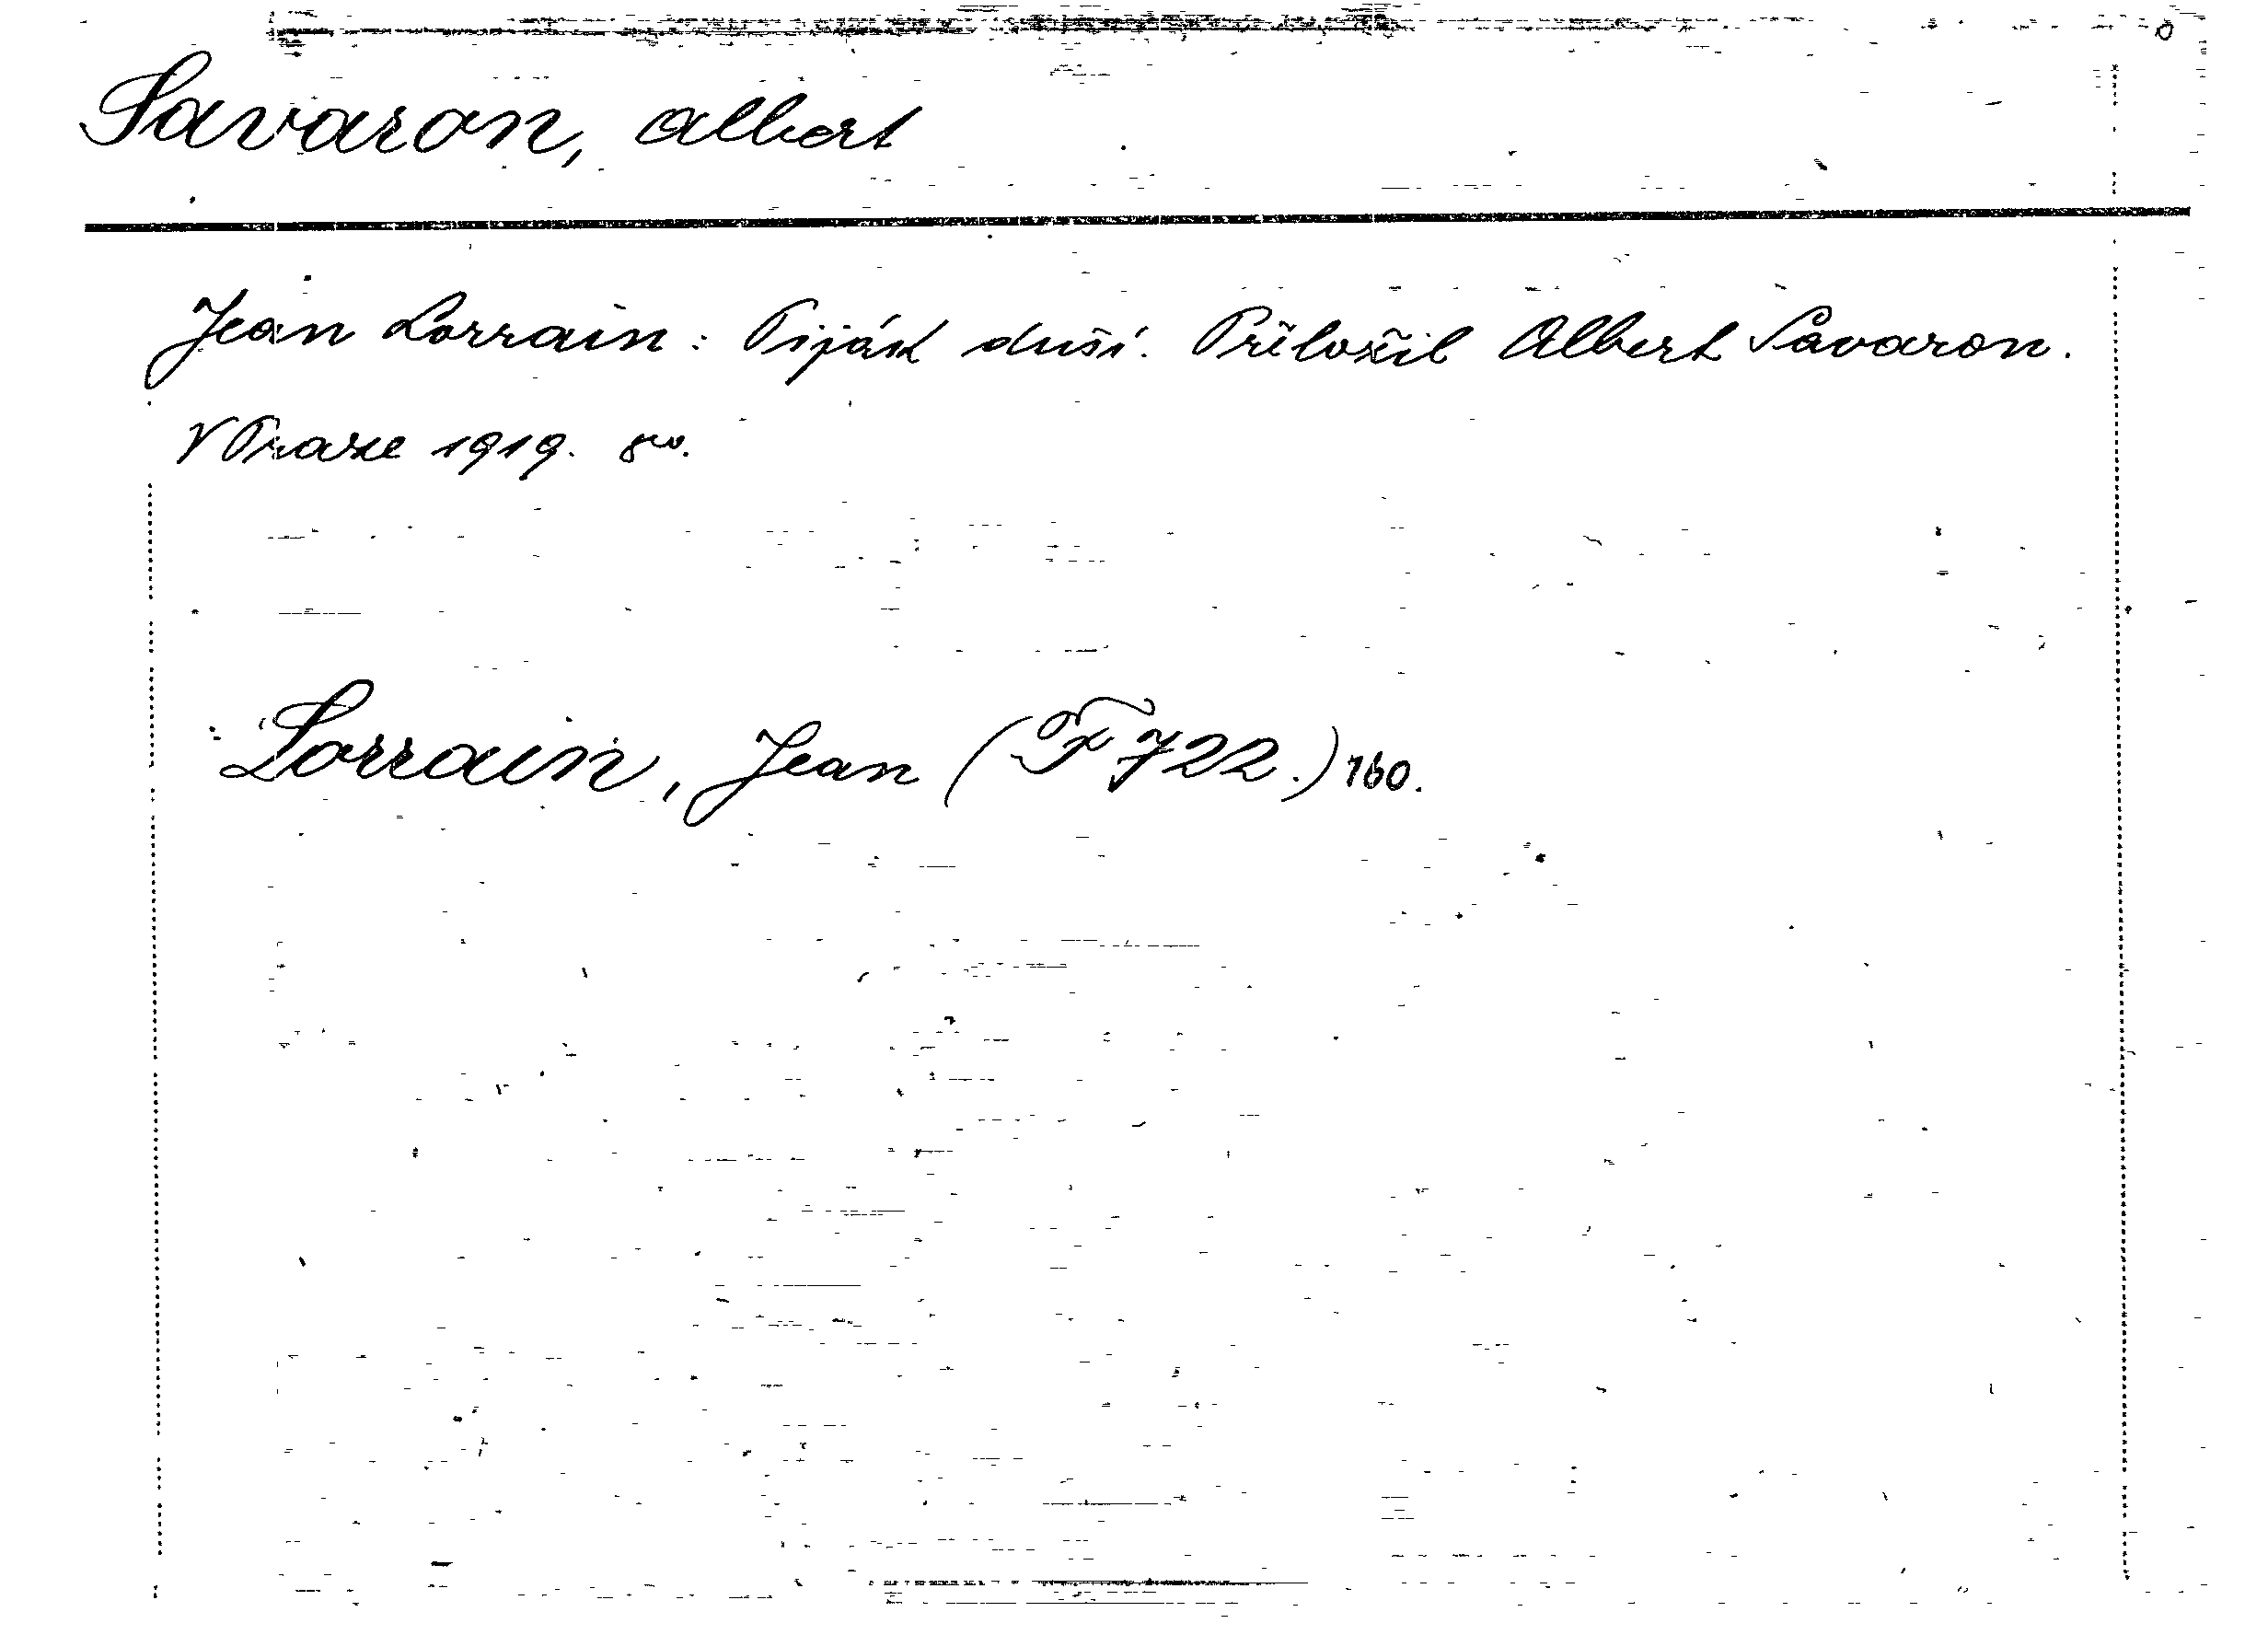 Savaron, Albert
Jean Lorrain: Piják duší. Přeložil Albert Savaron.
V Praze 1919. 8vo.
Lorrain, Jean (F 722.) 160.